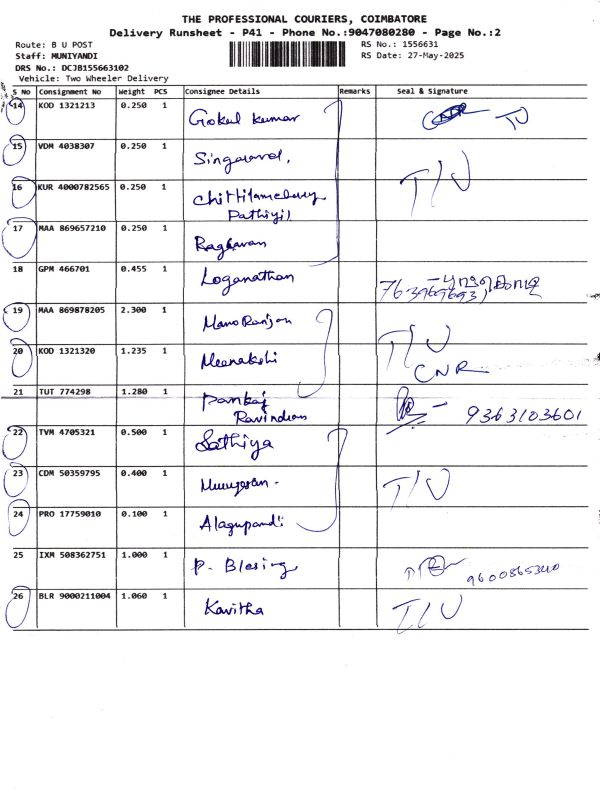 THE PROFESSIONAL COURIERS, COIMBATORE
Delivery Runsheet - P41 - Phone No.:9047080280 - Page No.:2
Route: B U POST
RS No.: 1556631
Staff: MUNIYANDI
RS Date: 27-May-2025
DRS No.: DCJB155663102
Vehicle: Two Wheeler Delivery
S No Consignment No Weight PCS Consignee Details Remarks Seal & Signature
14 KOD 1321213 0.250 1 Gokul Kumar
15 VDM 4038307 0.250 1 Singaravel,
16 KUR 4000782565 0.250 1 T/U
Pathiyil
17 MAA 869657210 0.250 1 Raghavan
18 GPM 466701 0.455 1 Loganathan
19 MAA 869878205 2.300 1 Mano Ranjan
20 KOD 1321320 1.235 1 Meenakshi T/U
CNR
21 TUT 774298 1.280 1 Pankaj
Ravindran 9363103601
22 TVM 4705321 0.500 1 Sathiya
23 CDM 50359795 0.400 1 Murugesan - T/U
24 PRO 17759010 0.100 1 Alagupandi
25 IXM 508362751 1.000 1 P. Blesing
26 BLR 9000211004 1.060 1 Kavitha T/U